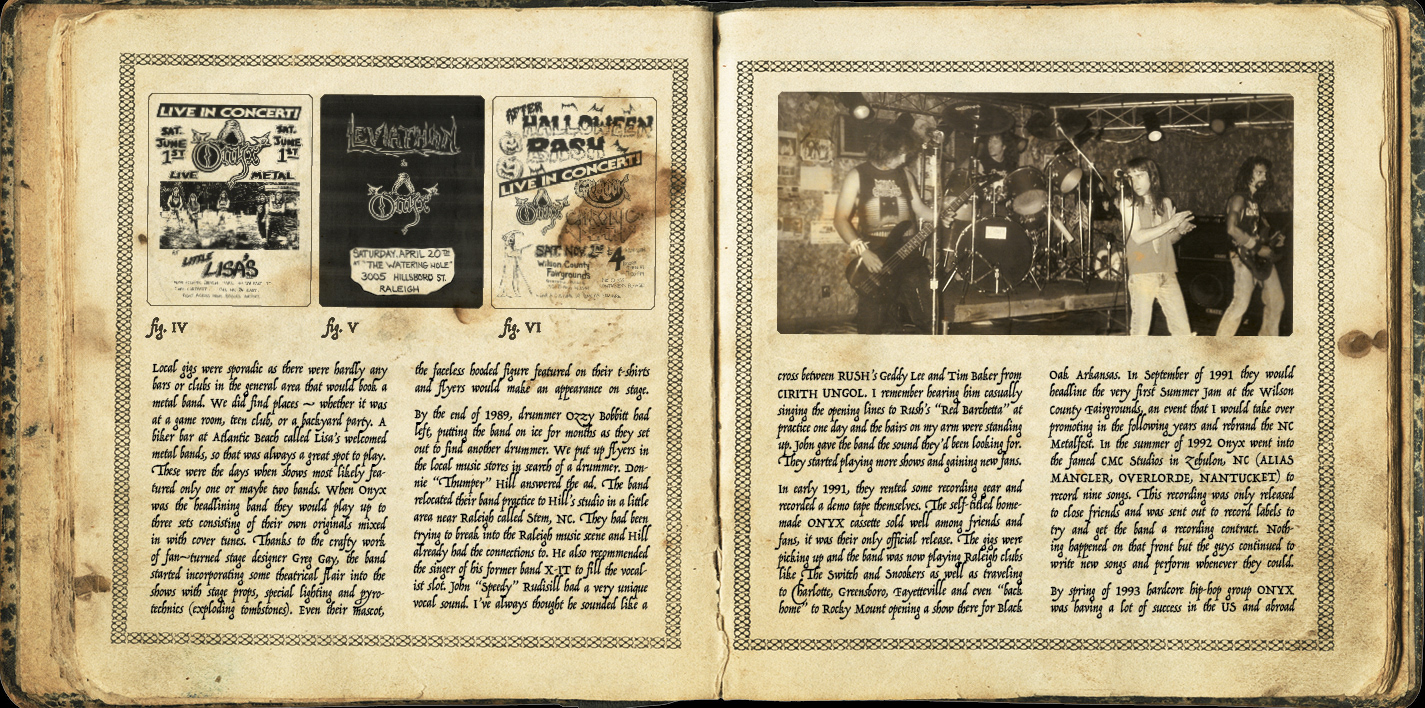 LIVE IN CONCERT!
SAT. JUNE 1ST
Onyx
SAT. JUNE 1ST
LIVE METAL
AT LITTLE LISA'S
LEVIATHAN
&
Onyx
SATURDAY, APRIL 20TH
AT "THE WATERING HOLE"
3005 HILLSBORO ST.
RALEIGH
AFTER
HALLOWEEN
BASH
LIVE IN CONCERT!
Onyx
SAT. NOV. 2ND
Wilson County
Fairgrounds
fig. IV
fig. V
fig. VI
Local gigs were sporadic as there were hardly any
bars or clubs in the general area that would book a
metal band. We did find places ~ whether it was
at a game room, teen club, or a backyard party. A
biker bar at Atlantic Beach called Lisa's welcomed
metal bands, so that was always a great spot to play.
These were the days when shows most likely fea-
tured only one or maybe two bands. When Onyx
was the headlining band they would play up to
three sets consisting of their own originals mixed
in with cover tunes. Thanks to the crafty work
of fan~turned stage designer Greg Gay, the band
started incorporating some theatrical flair into the
shows with stage props, special lighting and pyro-
technics (exploding tombstones). Even their mascot,
the faceless hooded figure featured on their t-shirts
and flyers would make an appearance on stage.
By the end of 1989, drummer Ozzy Bobbitt had
left, putting the band on ice for months as they set
out to find another drummer. We put up flyers in
the local music stores in search of a drummer. Don-
nie "Thumper" Hill answered the ad. The band
relocated their band practice to Hill's studio in a little
area near Raleigh called Stem, NC. They had been
trying to break into the Raleigh music scene and Hill
already had the connections to. He also recommended
the singer of his former band X-IT to fill the vocal-
ist slot. John "Speedy" Rudisill had a very unique
vocal sound. I've always thought he sounded like a
cross between RUSH's Geddy Lee and Tim Baker from
CIRITH UNGOL. I remember hearing him casually
singing the opening lines to Rush's "Red Barchetta" at
practice one day and the hairs on my arm were standing
up. John gave the band the sound they'd been looking for.
They started playing more shows and gaining new fans.
In early 1991, they rented some recording gear and
recorded a demo tape themselves. The self-titled home-
made ONYX cassette sold well among friends and
fans, it was their only official release. The gigs were
picking up and the band was now playing Raleigh clubs
like The Switch and Snookers as well as traveling
to Charlotte, Greensboro, Fayetteville and even "back
home" to Rocky Mount opening a show there for Black
Oak Arkansas. In September of 1991 they would
headline the very first Summer Jam at the Wilson
County Fairgrounds, an event that I would take over
promoting in the following years and rebrand the NC
Metalfest. In the summer of 1992 Onyx went into
the famed CMC Studios in Zebulon, NC (ALIAS
MANGLER, OVERLORDE, NANTUCKET) to
record nine songs. This recording was only released
to close friends and was sent out to record labels to
try and get the band a recording contract. Noth-
ing happened on that front but the guys continued to
write new songs and perform whenever they could.
By spring of 1993 hardcore hip-hop group ONYX
was having a lot of success in the US and abroad